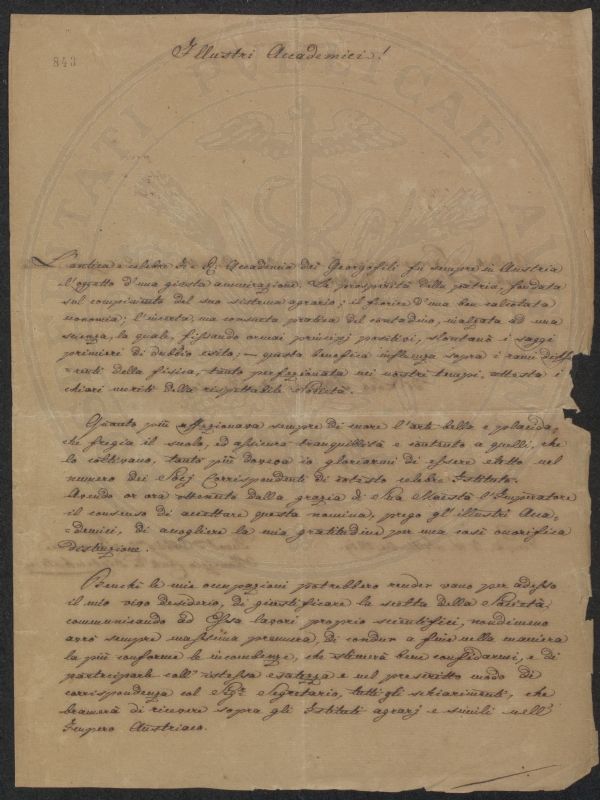 843
Illustri Accademici!
L'antica e celebre I. e R. Accademia dei Georgofili fu sempre in Austria
l'oggetto d'una giusta ammirazione. La prosperità della patria, fondata
sul compimento del suo sistema agrario; il fiorire d'una ben calcolata
economia; l'incerta, ma consueta pratica del contadino, inalzata ad una
scienza, la quale, fissando ormai principj positivi, allontanò i saggi
primieri di dubbio esito; — questa benefica influenza sopra i rami diffe-
=renti della fisica, tanto perfezionata nei nostri tempi, attesta i
chiari meriti della rispettabile Società.
Quanto più affezionava sempre di cuore l'arte bella e placida,
che fregia il suolo, ed assicura tranquillità e contento a quelli, che
lo coltivano, tanto più doveva io gloriarmi di essere eletto nel
numero dei Socj Corrispondenti di cotesto celebre Istituto.
Avendo or ora ottenuto dalla grazia di Sua Maestà l'Imperatore
il consenso di accettare questa nomina, prego gl'illustri Acca-
=demici, di accogliere la mia gratitudine per una così onorifica
distinzione.
Benchè le mie occupazioni potrebbero render vano per adesso
il mio vivo desiderio, di giustificare la scelta della Società
communicando ad Essa lavori proprio scientifici, nondimeno
avrò sempre massima premura, di condur a fine nella maniera
la più conforme le incombenze, che stimerà bene confidarmi, e di
parteciparle coll'istessa esatezza e nel prescritto modo di
corrispondenza col Sigr. Segretario, tutti gli schiarimenti, che
bramerà di ricevere sopra gli Istituti agrarj e simili nell'
Impero Austriaco.
STATI PUBLICAE